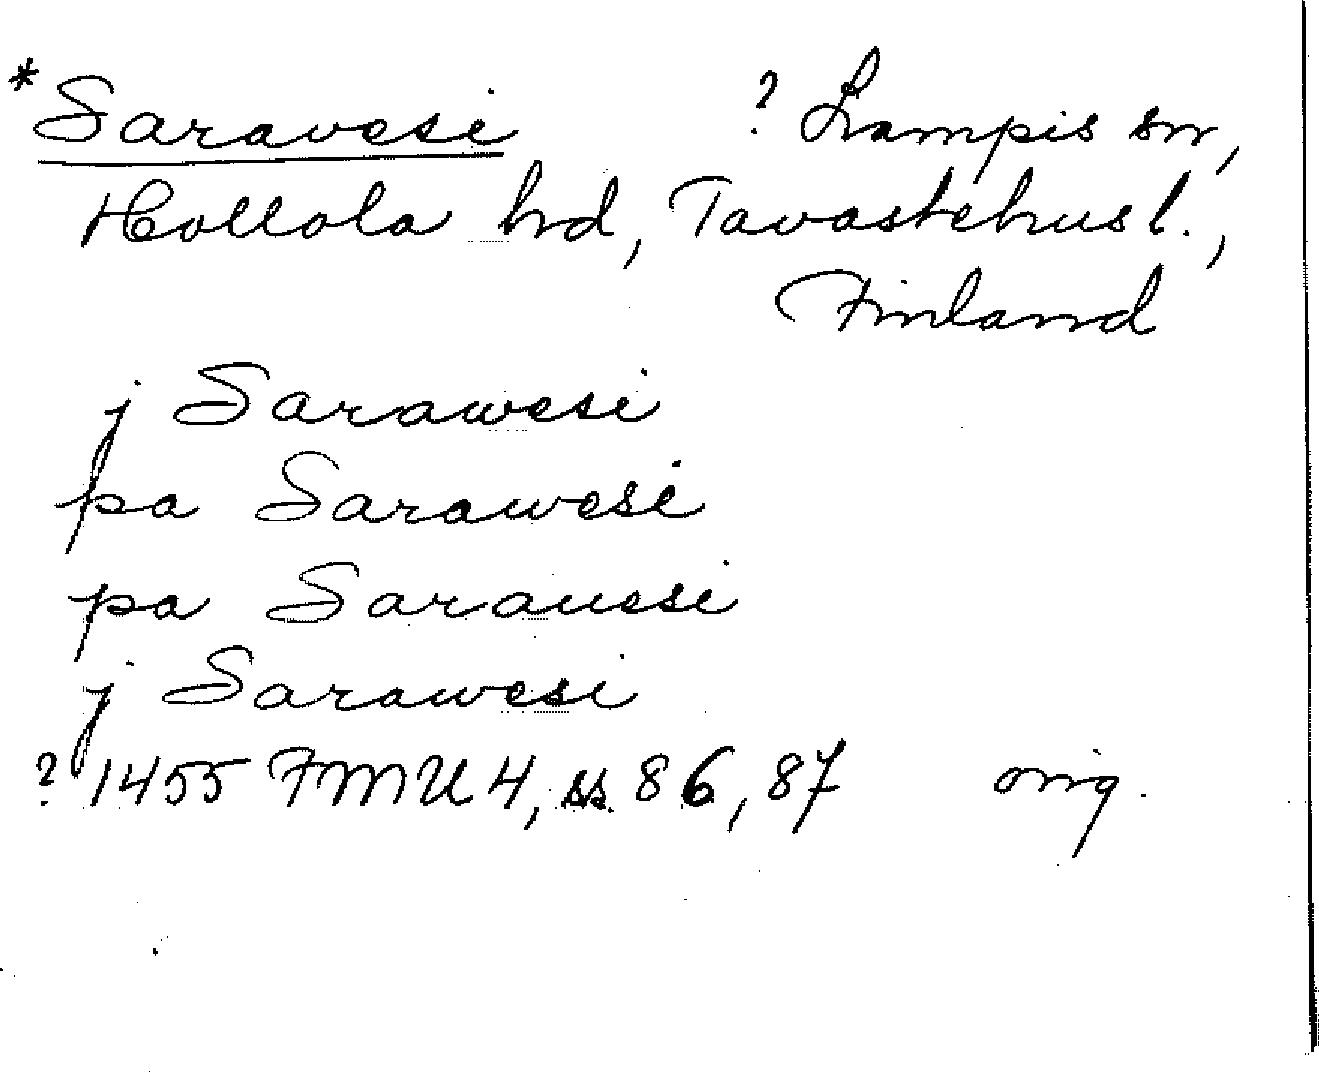 *Saravesi ? Lampis sn,
Hollola hd, Tavastehus l.,
Finland
j Sarawesi
pa Sarawesi
pa Sarauesi
j Sarawesi
? 1455 FMU 4, ss. 86, 87 orig.